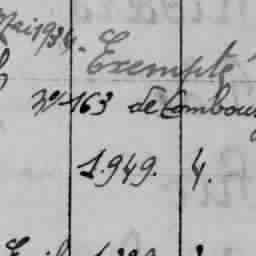 Mai 1934.
Exempté
No 163 de Combou
1.949. 4.